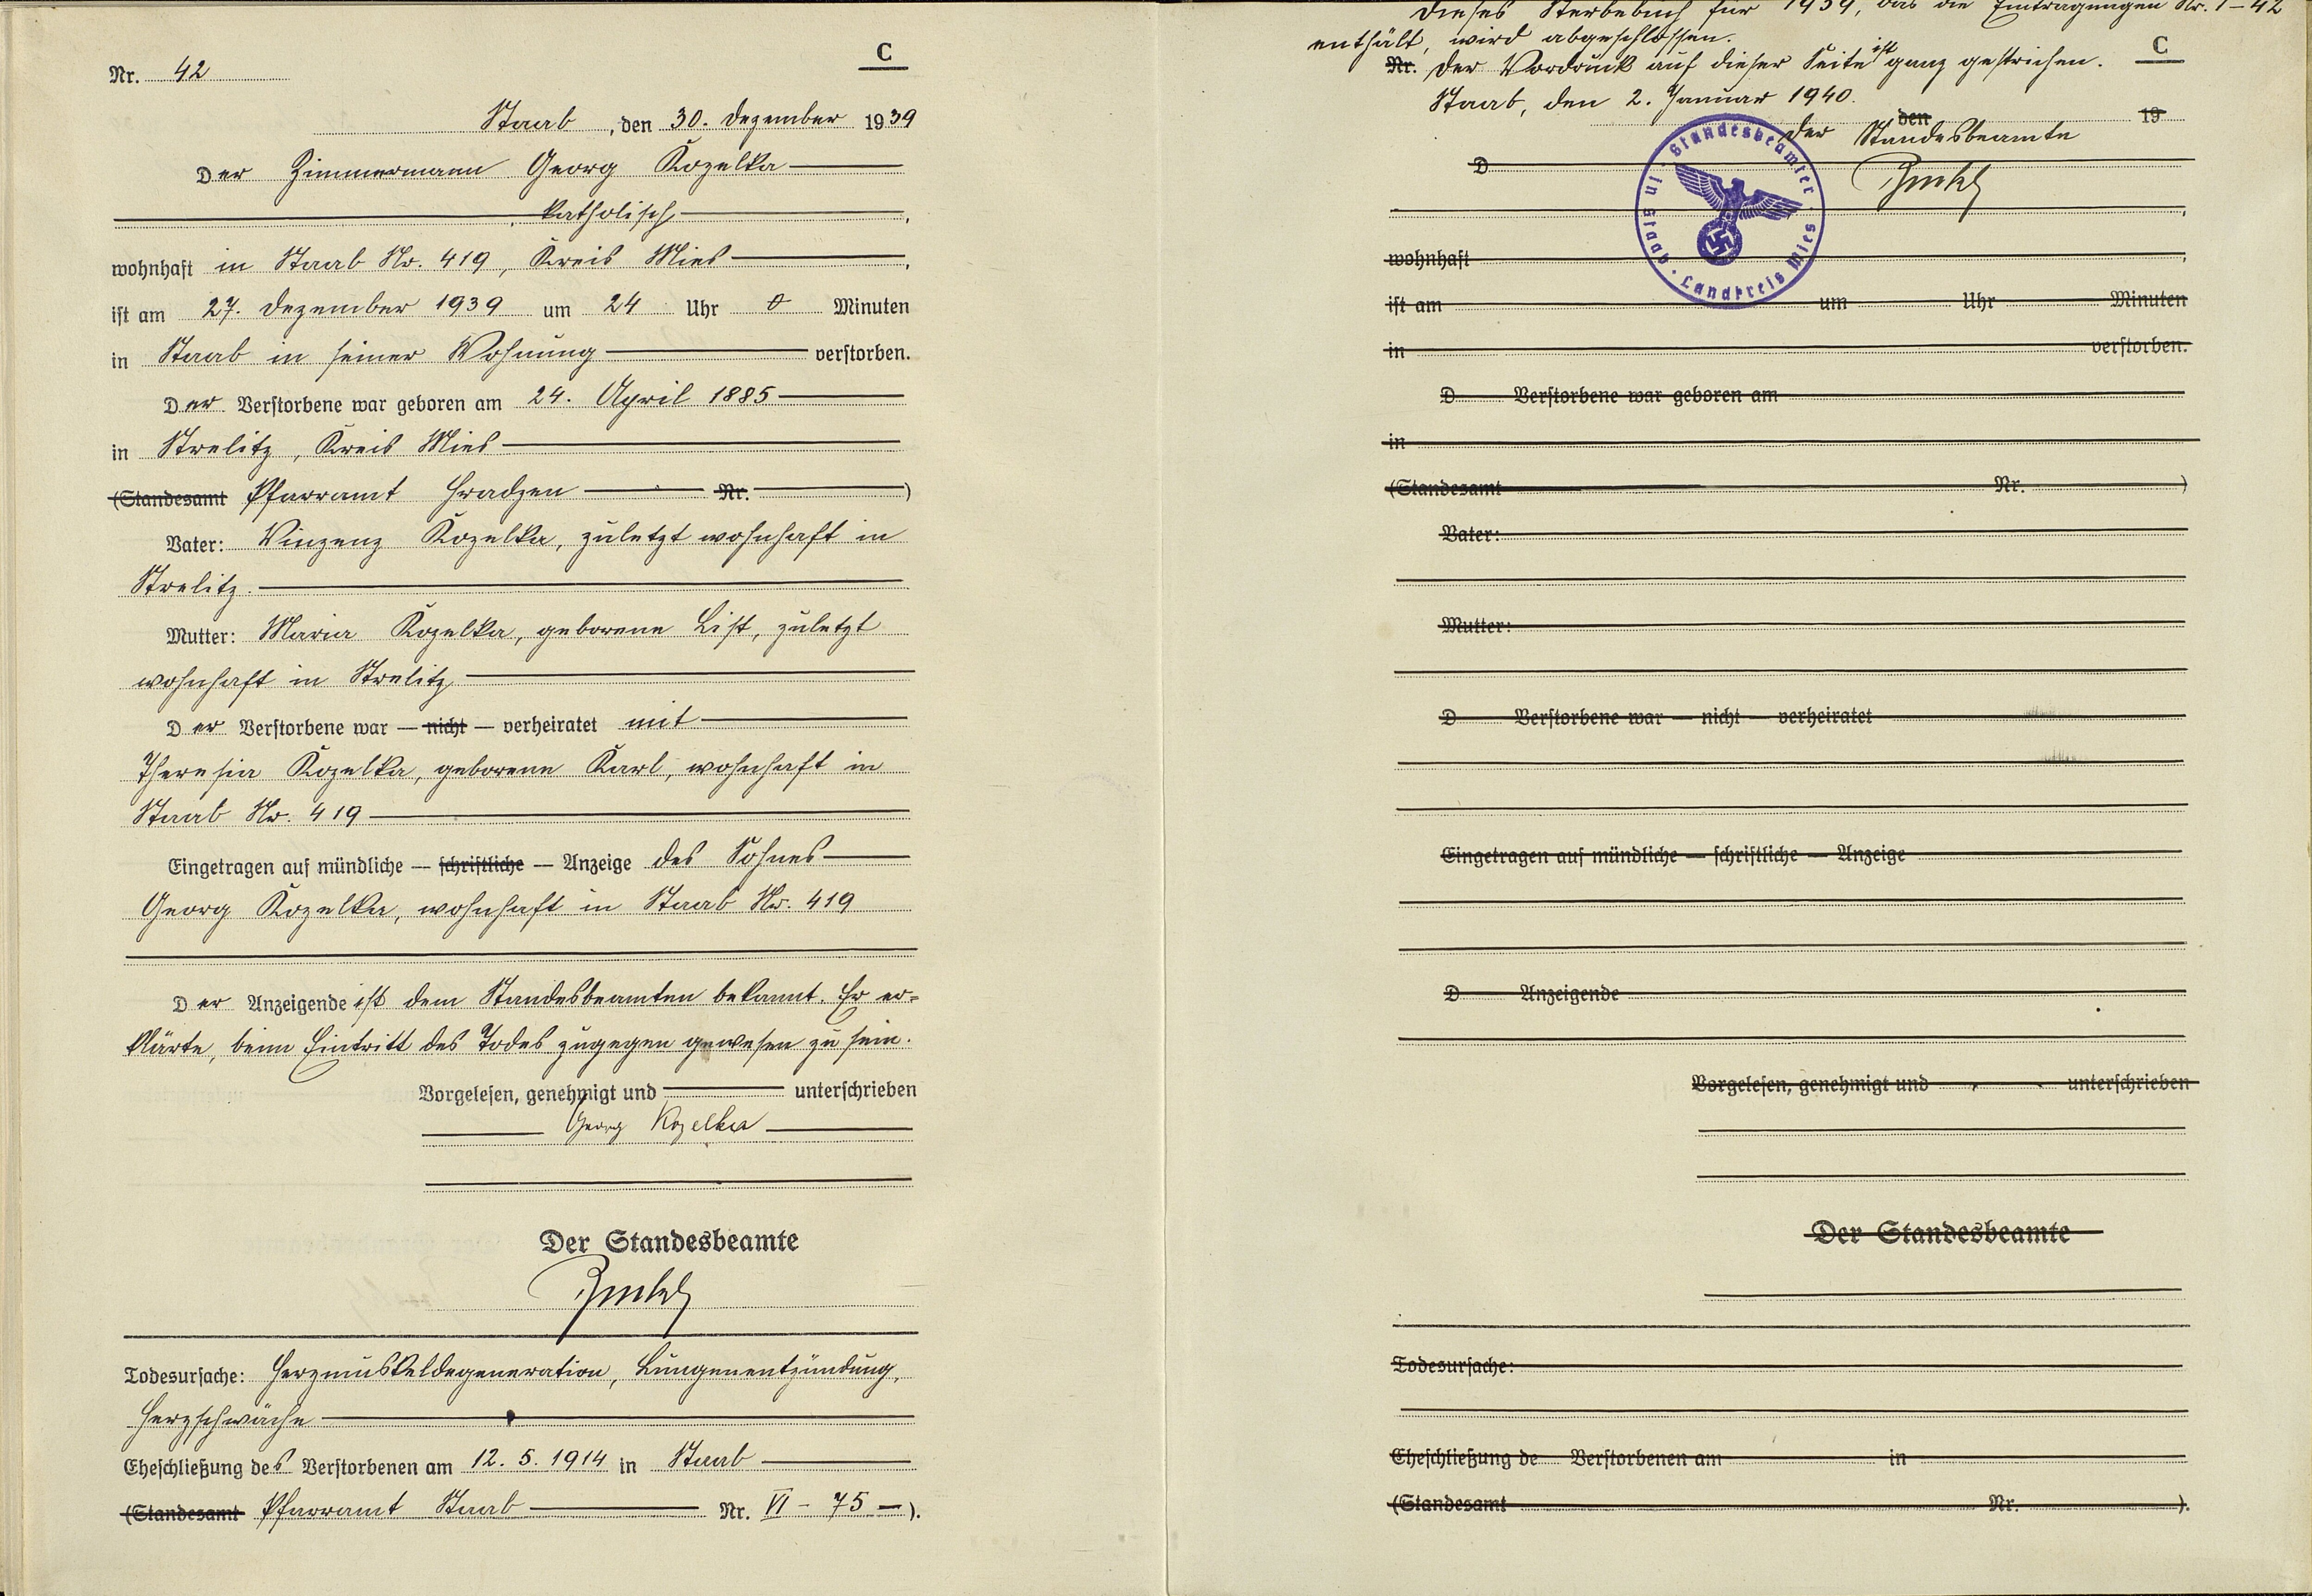 C
Nr. 42
Staab, den 30. Dezember 1939
Der Zimmermann Georg Kozelka
katholisch,
wohnhaft in Staab Nr. 419, Kreis Mies,
ist am 27. Dezember 1939 um 24 Uhr 0 Minuten
in Staab in seiner Wohnung verstorben.
Der Verstorbene war geboren am 24. April 1885
in Strelitz, Kreis Mies
(Standesamt Pfarramt Hradzen Nr. )
Vater: Vinzenz Kozelka, zuletzt wohnhaft in
Strelitz.
Mutter: Maria Kozelka, geborene List, zuletzt
wohnhaft in Strelitz
Der Verstorbene war — nicht — verheiratet mit
Theresia Kozelka, geborene Karl, wohnhaft in
Staab Nr. 419
Eingetragen auf mündliche — schriftliche — Anzeige des Sohnes
Georg Kozelka, wohnhaft in Staab Nr. 419
Der Anzeigende ist dem Standesbeamten bekannt. Er er=
klärte, beim Eintritt des Todes zugegen gewesen zu sein.
Vorgelesen, genehmigt und unterschrieben
Georg Kozelka
Der Standesbeamte
Todesursache: Herzmuskeldegeneration, Lungenentzündung,
Herzschwäche
Eheschließung des Verstorbenen am 12. 5. 1914 in Staab
(Standesamt Pfarramt Staab Nr. VI - 75 ).
Dieses Sterbebuch für 1939, das die Eintragungen Nr. 1-42
enthält, wird abgeschlossen.
C
Nr. Der Vordruck auf dieser Seite ist ganz gestrichen.
Staab, den 2. Januar 1940.
den 19
Der Standesbeamte
Standesbeamter in Staab · Landkreis Mies
D
wohnhaft
ist am um Uhr Minuten
in verstorben.
D Verstorbene war geboren am
in
(Standesamt Nr. )
Vater:
Mutter:
D Verstorbene war — nicht — verheiratet
Eingetragen auf mündliche — schriftliche — Anzeige
D Anzeigende
Vorgelesen, genehmigt und unterschrieben
Der Standesbeamte
Todesursache:
Eheschließung de Verstorbenen am in
(Standesamt Nr. ).